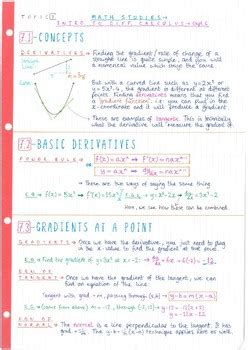 TOPIC 7
MATH STUDIES
INTRO TO DIFF. CALCULUS
7.1 - CONCEPTS
DERIVATIVES - Finding the gradient/rate of change of a
straight line is quite simple, and you will
find one value which stays the same.
But with a curved line such as y=2x² or
y=5x³-4, the gradient is different at different
points. Finding derivatives means that you find
a 'gradient function', i.e. you can plug in
the x-coordinate and it will give you the gradient.
These are examples of tangents. This is basically
what the derivative will measure the gradient of.
7.2 - BASIC DERIVATIVES
POWER RULE
f(x) = axⁿ → f'(x) = naxⁿ⁻¹
or
y = axⁿ → dy/dx = naxⁿ⁻¹
These are two ways of saying the same thing
e.g.
Here, we see how these can be combined.
7.3 - GRADIENTS AT A POINT
GRADIENTS - Once we have the derivative, you just need to plug
in the x-value to find the gradient at the point.
e.g. Find the gradient of
EQN OF TANGENT - Once we have the gradient of the tangent, we can
find an equation of the line.
Tangent with grad - m, passing through (a,b) → y-b = m(x-a)
e.g. (same from above)
EQN OF NORMAL - The normal is a line perpendicular to the tangent. It has
grad - 1/m. The y-b = technique applies here as well.